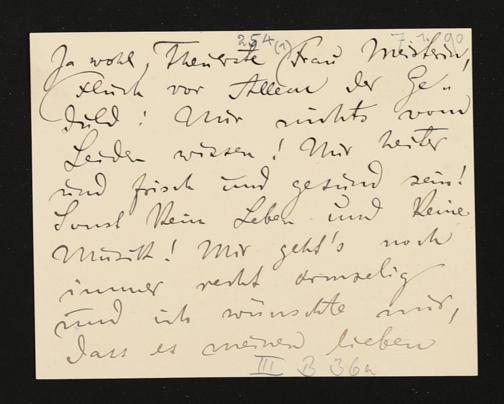 254(1) 7.2.90
Ja wohl, Theuerste Frau Meisterin,
Fluch vor Allem der Ge„
duld! Nur nichts vom
Leiden wissen! Nur heiter
und frisch und gesund sein!
Sonst kein Leben und keine
Musik! Mir geht's noch
immer recht armselig
und ich wünschte mir,
dass es meinen lieben
III B 36a